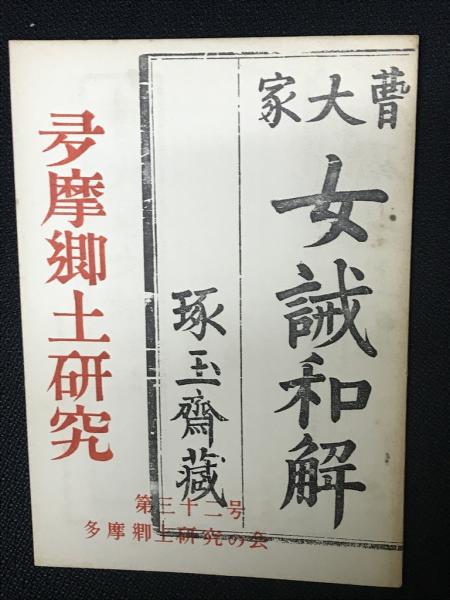 曹大家
女誡和解
琢玉齋藏
多摩郷土研究
第三十二号
多摩郷土研究の会